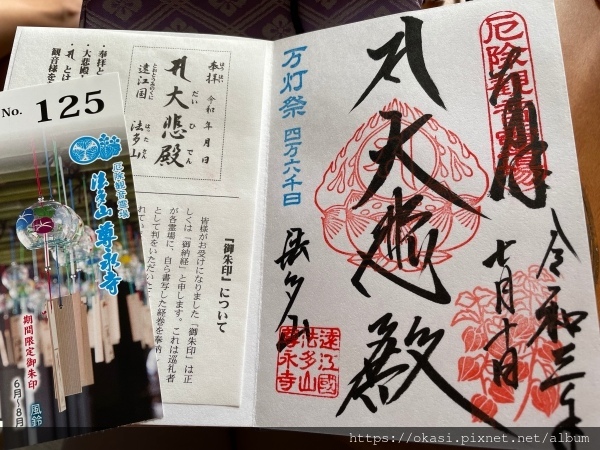 No. 125
厄除観音霊場
法多山 尊永寺
期間限定御朱印
6月～8月
風鈴
・奉拝と
・大悲殿
観音様を
奉拝 令和 年 月 日
大悲殿
だいひでん
遠江国 法多山
とおとうみのくに
はったさん
『御朱印』について
皆様がお受けになりました「御朱印」は正
しくは「御納経」と申します。これは巡礼者
が各霊場に、自ら書写した経巻を奉納
として判をいただいた
万灯祭 四万六千日
大悲殿
法多山
厄除観音霊場
七月十日
令和三年
遠江國
法多山
尊永寺
https://okasi.pixnet.net/album